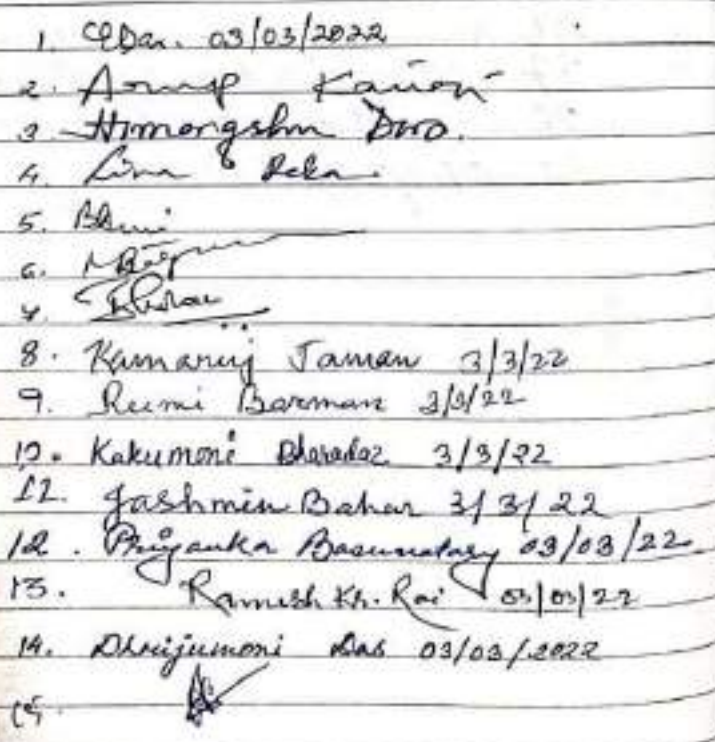 1. 03/03/2022
2. Arup
3. Himongshu
4. Lima Deka
5.
6.
7.
8. Kamaruj Jaman 3/3/22
9. Rumi Barman 3/3/22
10. Kakumoni Bharadaz 3/3/22
11. Jashmin Bahar 3/3/22
12. Priyanka Basumatary 03/03/22
13. Ramesh Kr. Rai 03/03/22
14. Dhrijumoni Das 03/03/2022
15.